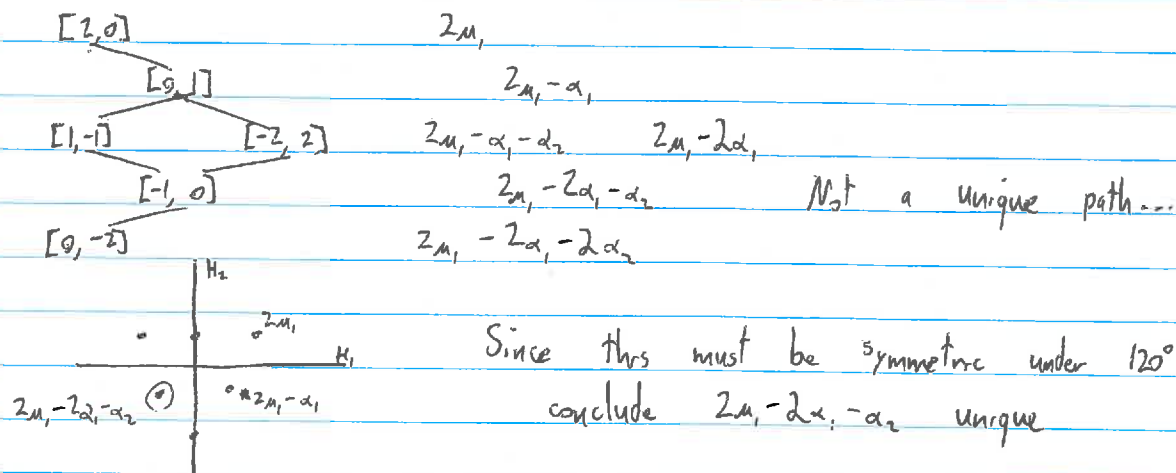 [2,0] 2μ₁
[0,1] 2μ₁-α₁
[1,-1] [-2,2] 2μ₁-α₁-α₂ 2μ₁-2α₁
[-1,0] 2μ₁-2α₁-α₂ Not a unique path...
[0,-2] 2μ₁-2α₁-2α₂
H₂
2μ₁
H₁
Since this must be symmetric under 120°
2μ₁-2α₁-α₂ 2μ₁-α₁ conclude 2μ₁-2α₁-α₂ unique